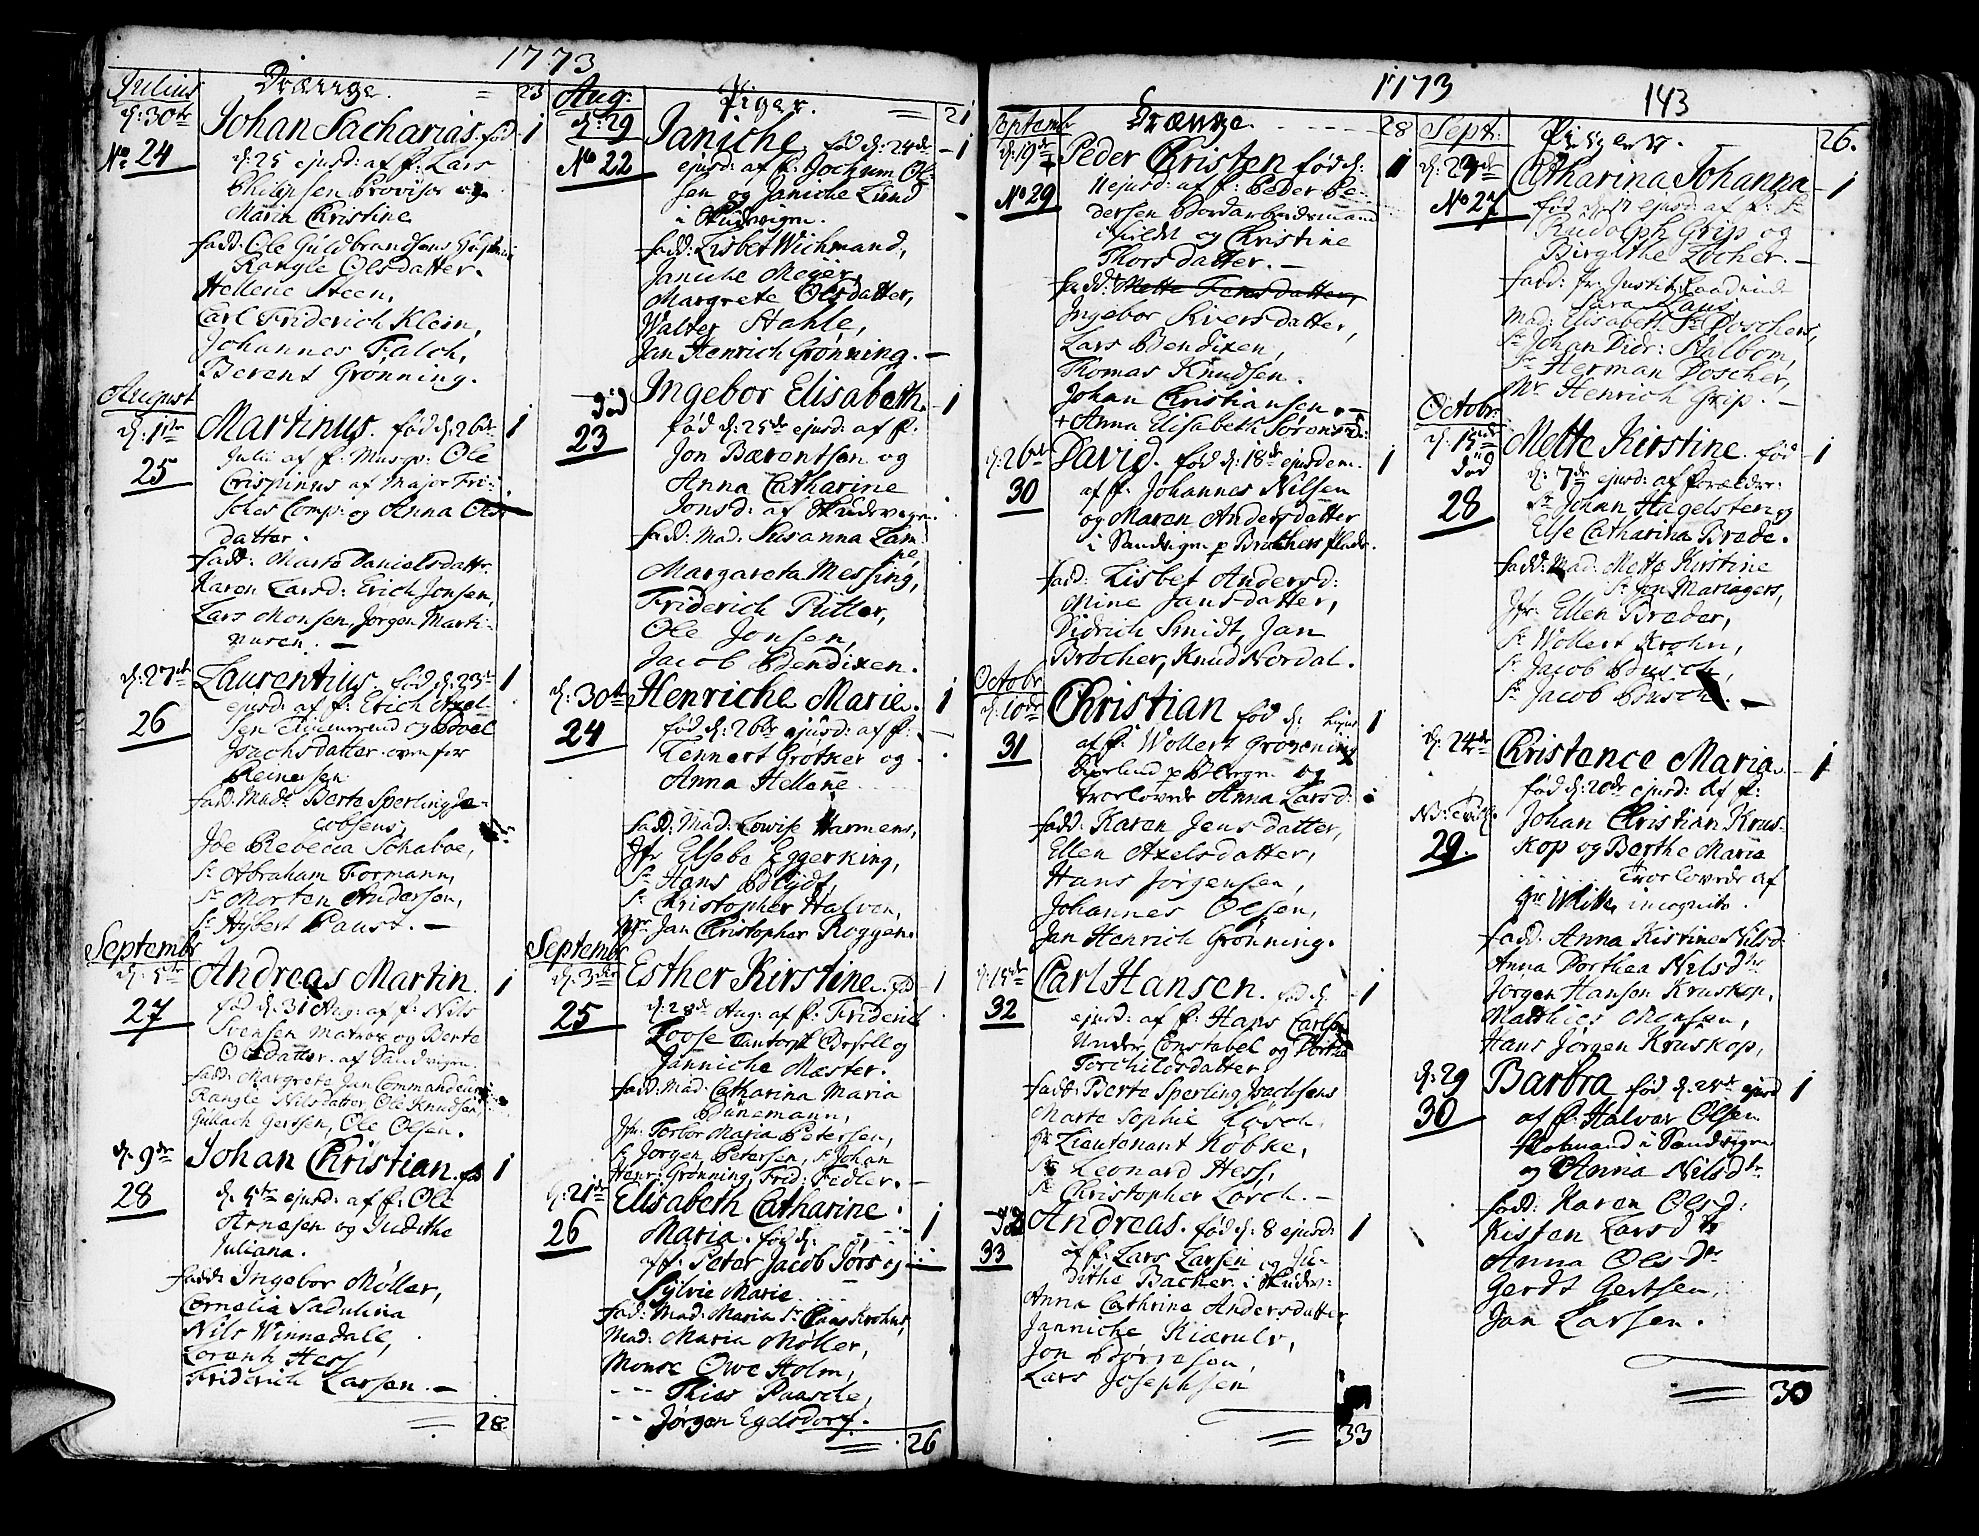 1773
Julius
Drænge. = 23
d: 30te Johan Sacharias. fød 1
No 24 d: 25 ejusd: af f: Lars
Philipsen Provisor og
Maria Christine
fadd: Ole Guldbrandsens
Rangle Olsdatter.
Hellene Steen,
Carl Friderich Klein,
Johannes Falch,
Berent Grønning.
August
d: 1te Martinus. fød d: 26de 1
25 Julii af f: Musqv: Ole
Crispinus af Major Fri-
sches Comp: og Anna Ols-
datter.
fadd: Marte Danielsdattr.
Karen Larsd: Erich Jonsen,
Lars Monsen, Jørgen Marti-
nusen. —
d: 27de Laurentius fød d: 23de 1
26 ejusd: af f: Erich Axel-
sen Tømmermand og Boel
Isachsdatter oven for
Reinersen
fadd: Made Berte Sperling Ja-
cobsens,
Joe Rebecca Schaboe,
Sr Abraham Formann,
Sr Morten Andersen,
Sr Hybert Paust. —
Septembr
d: 5te Andreas Martin. 1
27 fød d: 31 Aug: af f: Nils
Svensen Matros og Berte
Olsdatter af Sandvigen.
fadd: Margrete Jan Commandeurs
Rangle Nilsdatter, Ole Knudsen,
Gullach Gertsen, Ole Olsen.
d: 9de Johan Christian. fød 1
28 d: 5te ejusd: af f: Ole
Arnesen og Judithe
Juliana.
fadd: Ingebor Møller,
Cornelia Sadulina
Nils Winnedall,
Lorentz Hess,
Friderich Larsen. —
= 28
Aug:
Piger. = 21
d: 29 Janiche, fød d: 24de 1
No 22 ejusd: af f: Jochum Ol-
sen og Janiche Lund
i Skudevigen.
fadd: Lisbet Wichmand,
Janiche Meyer,
Margrete Olsdatter,
Walter Stahle,
Jan Henrich Grønning. —
død Ingebor Elisabeth. 1
23 fød d: 25de ejusd: af f:
Jon Bærentsen og
Anna Catharine
Jonsd: af Skudevigen.
fadd: Mad: Susanna Lam-
pe
Margareta Messing,
Friderich Pütter,
Ole Jonsen,
Jacob Bendixen.
d: 30te Henriche Marie. 1
24 fød d: 26de ejusd: af f:
Lennert Grotker og
Anna Hellene
fadd: Mad: Lowise Harmens,
Jfr Elsebe Eggerking,
Sr Hans Blydt,
Sr Christopher Halvor,
Mr Jan Christopher Roggen.
Septembr
d: 3de Esther Kirstine. fød 1
25 d: 28de Aug: af f: Friderich
Loose Cantor og
Janniche Mæster.
fadd: Mad: Catharina Maria
Bünemann,
Jfr: Torbor Maria Petersen,
Sr Jørgen Petersen, Sr Johan
Henr: Grønning, Frid: Fedler. —
d: 21de Elisabeth Catharine
26 Maria. fød d: 1
af f: Peter Jacob Jørs og
Sylvie Marie
fad: Mad: Maria Sr Claus Krohns,
Mad: Maria Møller,
Monsr Owe Holm,
-- Thies Paasche,
-- Jørgen Egelsdorf.
= 26
1773
Septemb
Drænge. 28
d: 19de Peder Christen fød d: 1
No 29 11 ejusd: af f: Peder Pe-
dersen Bordarbeidsmand
og Christine
Thorsdatter. —
fadd: Mette Tensdatter,
Ingebor Iversdatter,
Lars Bendixen,
Thomas Knudsen.
Johan Christiansen. —
+ Anna Elisabeth Sørensd:
d: 26de David. fød d: 18de ejusdem. 1
30 af f: Johannes Nilsen
og Maren Andersdatter
i Sandvigen p Brøchers Plads.
fadd: Lisbet Andersd:
Mine Jansdatter,
Didrich Smidt, Jan
Brøcher, Knud Nordal.
Octobr
d: 10de Christian fød d: 1
31 af f: Wollert Grønning
p Bergen og
troelovede Anna Larsd:
fadd: Karen Jensdatter,
Ellen Axelsdatter,
Hans Jørgensen,
Johannes Olsen,
Jan Henrich Grønning.
Carl Hansen. fød d: 1
32 ejusd: af f: Hans Carlsen
Under Constabel og Dorthe
Torchildsdatter,
fadd: Berte Sperling Isachsens
Marte Sophie Losch,
Hr Lieutenant Købke,
Sr Leonard Hess,
Sr Christopher Lorch. —
Andreas. fød d: 8 ejusd: 1
33 af f: Lars Larsen og Ju-
dithe Backer i Skudev:
Anna Cathrine Andersdatter
Janniche Kiærulv,
Jon Børresen,
Lars Josephsen
= 33
143
Sept:
Pigen. 26.
d: 23de Catharina Johanna 1
No 27 fød d: 17 ejusd: af f: Sr
Rudolph Grip og
Birgithe Zøcher. —
fadd: Fr: Justitzraadinde
Sara Haus,
Mad: Elisabeth Sr Poschers,
Sr Johan Didr: Kalbom,
Sr Herman Poscher,
Mr Henrich Grip. —
Octobr:
død Mette Kirstine. fød 1
28 d: 7de ejusd: af forældre:
Sr Johan Hagelsten og
Else Catharina Brede.
fadd: Mad: Mette Kirstine
Sr Jon Mariagers,
Jfr: Ellen Breder,
Sr Wollert Krohn,
Sr Jacob Busch,
Sr Jacob Busch. —
d: 24de Christence Maria. 1
fød d: 20de ejusd: af f:
29. Johan Christian Krus-
kop og Berthe Maria
Troelovede af
incognito.
fadd: Anna Kistine Nilsd:
Anna Dorthea Nilsdtr
Jørgen Hansen Kruskop,
Matthies Monsen,
Hans Jørgen Kruskop,
d: 29 Barbra fød d: 25de ejusd 1
30 af f: Halvor Olsen
i Sandvigen
og Anna Nilsdtr
fadd: Karen Olsd:
Kisten Larsdtr
Anna Olsdtr
Gerdt Gertsen,
Jan Larsen.
= 30